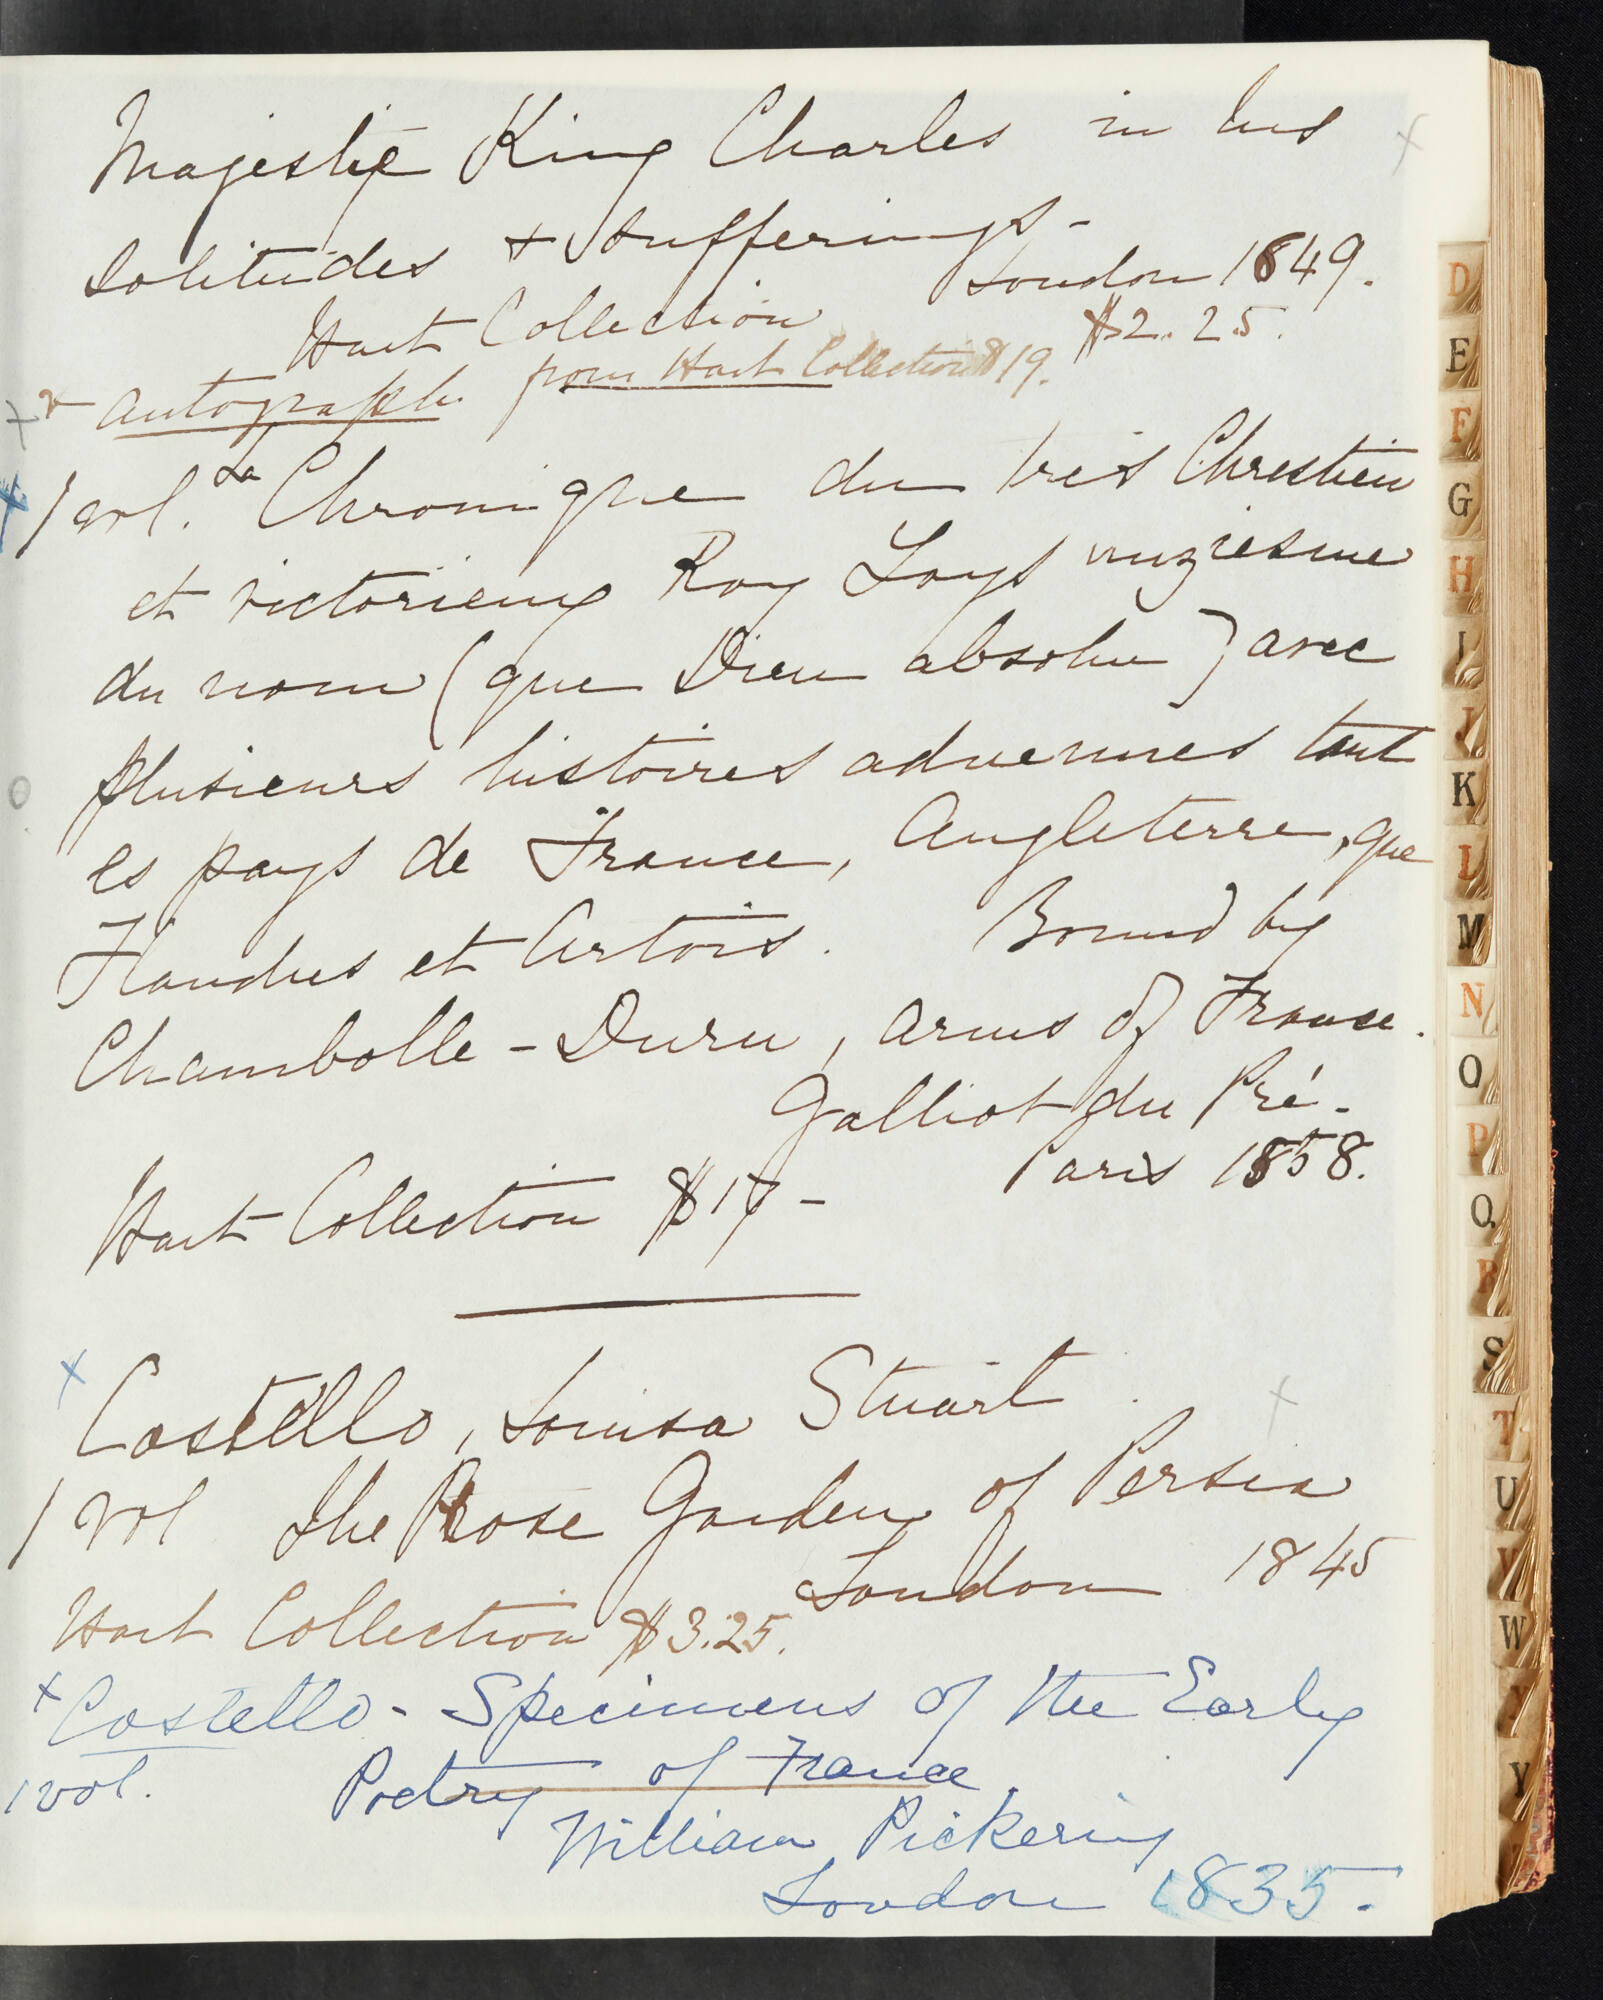 Majestie King Charles in his
Solitudes + Sufferings -
London 1649.
Hart Collection $2.25.
+ Autograph from Hart Collection $19.
1 vol. La Chronique du tres Chrestien
et victorieux Roy Loys unziesme
du nom (que Dieu absolue) avec
plusieurs histoires advenues tant
es pays de France, Angleterre, que
Flandres et Artois. Bound by
Chambolle - Duru, arms of France.
Galliot du Pré.
Paris 1558.
Hart Collection $17 -
x Costello, Louisa Stuart
1 vol The Rose Garden of Persia
London 1845
Hart Collection $3.25.
x Costello - Specimens of the Early
1 vol. Poetry of France
William Pickering
London 1835.
D
E
F
G
H
I
J
K
L
M
N
O
P
Q
R
S
T
U
V
W
X
Y